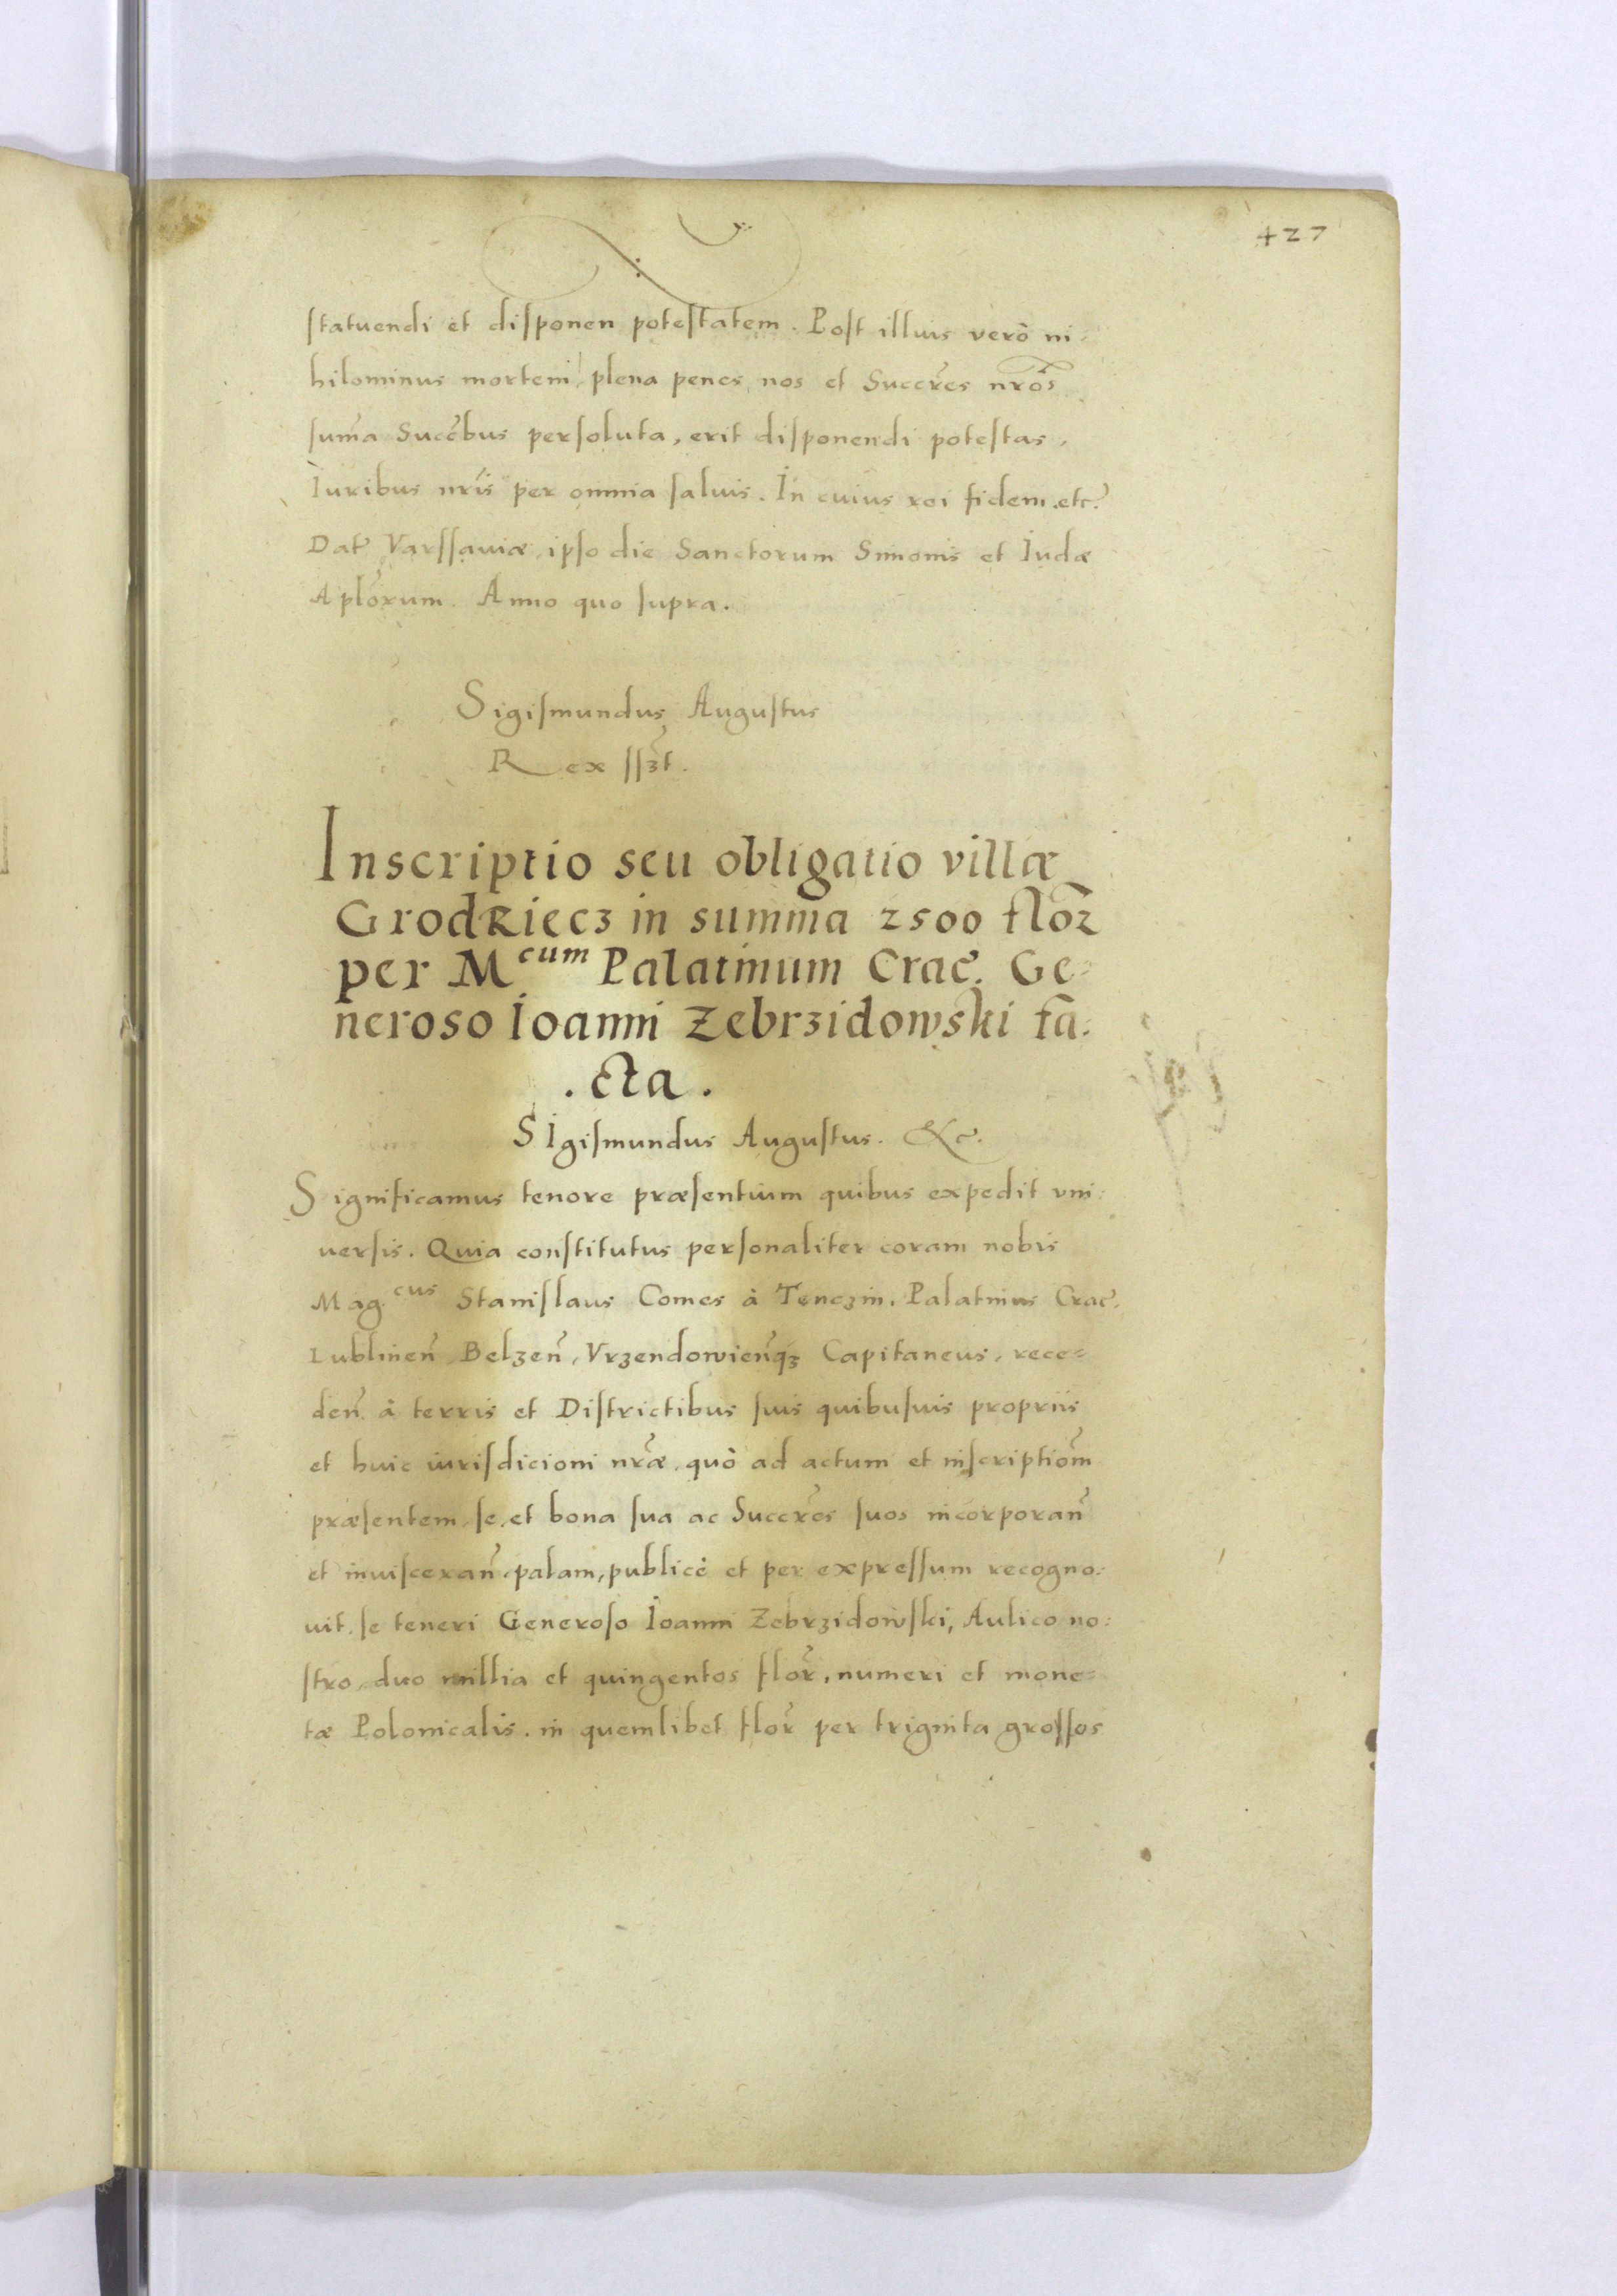 427
statuendi et disponen potestatem. Post illius verò ni:
hilominus mortem, plena penes nos et Succẽres nrõs
sum̃a Succẽbus persoluta, erit disponendi potestas,
Iuribus nrĩs per omnia saluis. In cuius rei fidem. etc̃.
Dat̃ Varssauiæ, ipso die Sanctorum Simonis et Iudæ
Aplõrum. Anno quo supra.
Sigismundus Augustus
Rex sszt̃.
Inscriptio seu obligatio villæ
Grodkiecz in summa 2500 flor̃
per M^cum Palatinum Crac̃. Ge=
neroso Ioanni Zebrzidowski fa:
.cta.
SIgismundus Augustus. &c̃.
Significamus tenore præsentium quibus expedit vni:
uersis. Quia constitutus personaliter coram nobis
Mag.^cus Stanislaus Comes à Tenczin, Palatinus Crac̃.
Lublineñ, Belzeñ, Vrzendowieñqz Capitaneus, rece=
deñ à terris et Districtibus suis quibusuis propriis
et huic iurisdicioni nræ̃, quò ad actum et inscriptiom̃
præsentem, se, et bona sua ac Succrẽs suos incorporañ
et inuiscerañ, palam, publicè et per expressum recogno:
uit, se teneri Generoso Ioanni Zebrzidowski, Aulico no:
stro, duo millia et quingentos flor̃, numeri et mone=
tæ Polonicalis. in quemlibet flor̃ per triginta grossos